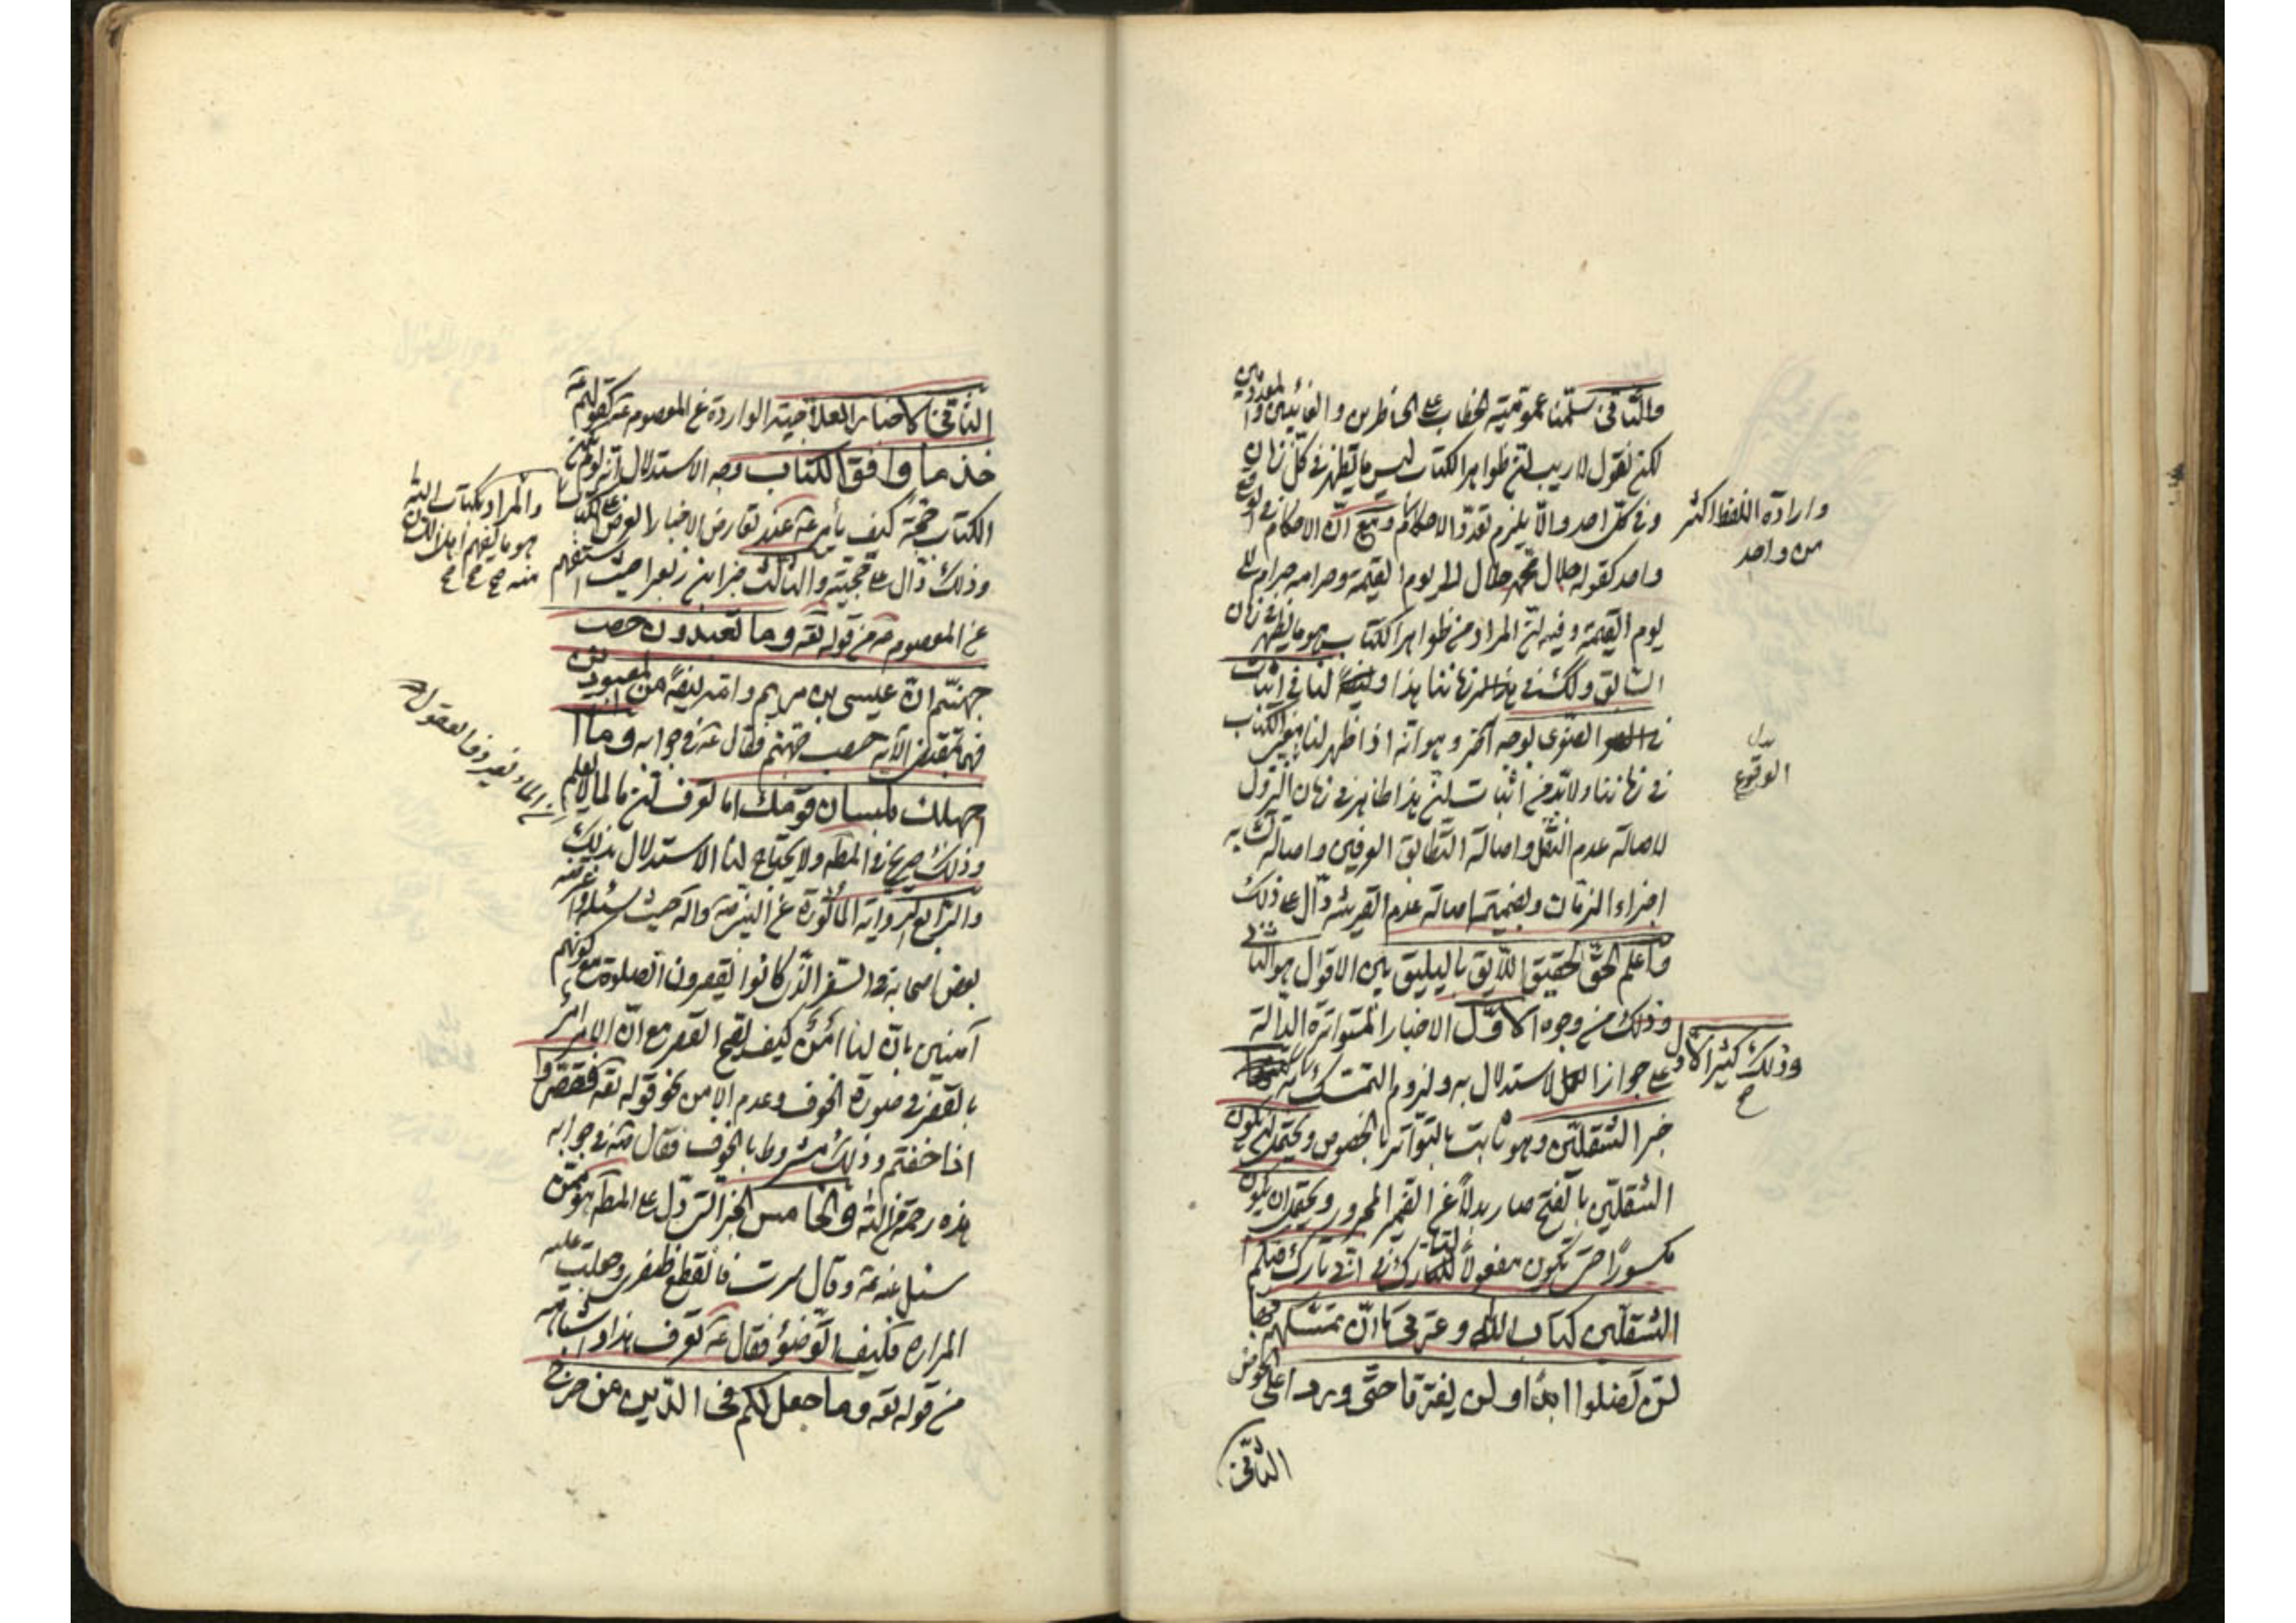 والثاني سلّمنا عموميّة الخطاب على الحاضرين والغائبين والمعدومين
لكن نقول لا ريب انّ ظواهر الكتاب ليس ما يظهر في كلّ زمان
وفي كلّ احد والّا يلزم تعدّد الاحكام
واحد كقوله حلال محمّد حلال الى يوم القيمة وحرامه حرام الى
يوم القيمة وفيه انّ المراد من ظواهر الكتاب هو ما يظهر في زمان
السابق ولكن في زماننا هذا لنا في اثبات
الصغرى بوجه آخر وهو انه اذا ظهر لنا الكتاب
في زماننا ولابدّ من اثبات انّ هذا ظاهر في زمان النزول
لاصالة عدم النقل واصالة التطابق العرفين واصالة تشابه
اجزاء الزمان وبضميمة اصالة عدم القرينة دالّ على ذلك
فاعلم الحقّ الحقيق اللايق باليليق بين الاقوال هو الثاني
وذلك من وجوه الاوّل الاخبار المتواترة الدالة
على جواز الاستدلال به ولزوم التمسّك به
خبر الثقلين وهو ثابت بالتواتر بالخصوص ويحتمل ان يكون
الثقلين بالفتح صار بدلاً عن الضمير المجرور ويحتمل ان يكون
مكسوراً حتى يكون مفعولاً لتارك في انّي تارك فيكم
الثقلين كتاب الله وعترتي ما ان تمسّكتم بهما
لن تضلوا ابداً ولن يفترقا حتّى وردا على الحوض
الثاني
وارادة اللفظ اكثر
من واحد
بدل
الوقوع
وذلك كثير الاوّل
الثاني الاخبار العلاجية الواردة عن المعصوم كقولهم
خذ ما وافق الكتاب وجه الاستدلال انه لو لم يكن
الكتاب حجّة كيف يأمر عند تعارض الاخبار العرض على الكتاب
وذلك دالّ على حجّيته والثالث خبر ابن زبعرا حيث استفهم
عن المعصوم من قوله تعه وما تعبدون حصب
جهنّم انّ عيسى بن مريم وامّه ايضاً من المعبودين
فبمقتضى الآية حصب جهنم فقال في جوابه وما
اجهلك بلسان قومك اما تعرف انّ ما لما لا يعقل
وذلك صريح في المطه ولا يحتاج لنا الاستدلال بذلك
والرابع الرواية المأثورة عن النبي واله حيث سئلوا عنه
بعض صحابة في السفر الذي كانوا يقصرون الصلوة مع كونهم
آمنين بانّ لنا امن كيف يقع القصر مع انّ الامر
بالقصر في صورة الخوف وعدم الامن نحو قوله تعه فقصروا
اذا خفتم وذلك مشروط بالخوف فقال في جوابه
هذه رحمة من الله والخامس الخبر الذي دلّ على المطه هو ممّن
سئل عنه وقال سرت فانقطع ظفري وجعلت عليه
المرارة فكيف الوضوء فقال تعرف هذا واشباهه
من قوله تعه وما جعل لكم في الدّين من حرج
والمراد بكتاب الله
هو ما يفهم اهل اللسان
منه